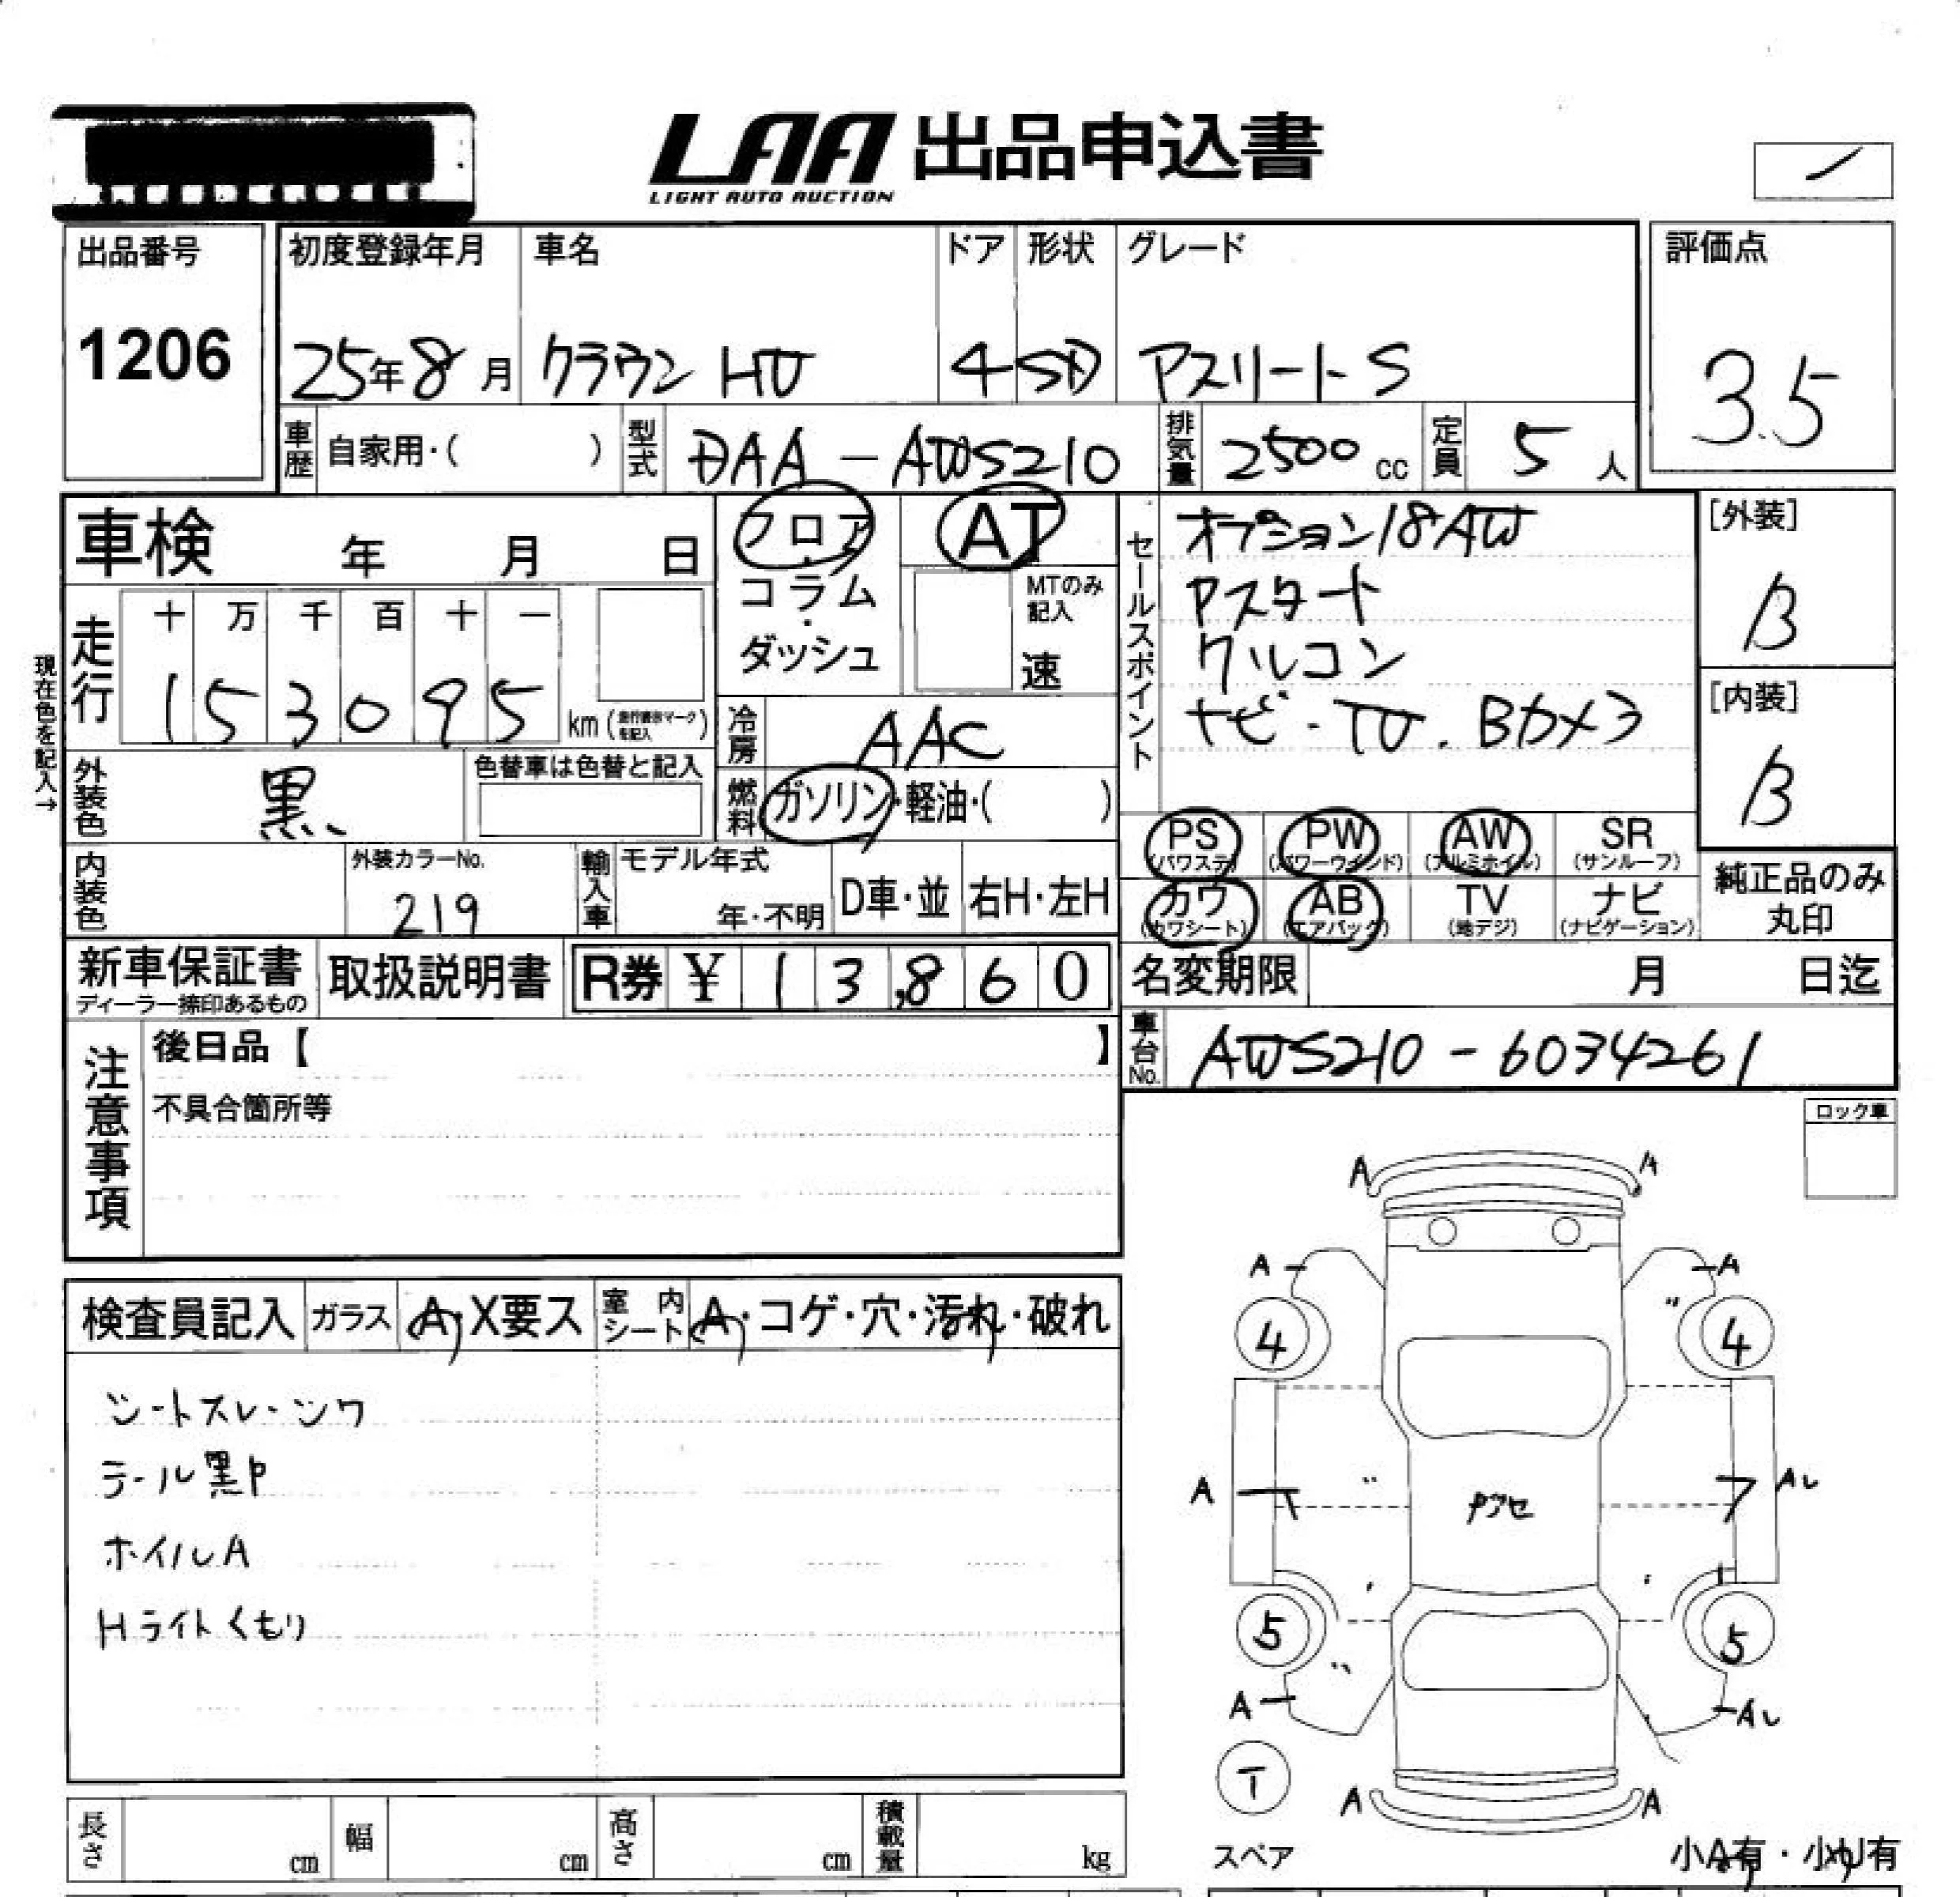 LAA 出品申込書
LIGHT AUTO AUCTION
出品番号
1206
初度登録年月
25年8月
車名
クラウン HV
ドア
4
形状
SD
グレード
アスリートS
評価点
3.5
車歴 自家用・( )
型式 DAA-AWS210
排気量 2500cc
定員 5人
車検 年 月 日
フロア・コラム・ダッシュ
AT
MTのみ記入
速
現在色を記入→
走行
十 万 千 百 十 一
1 5 3 0 9 5 km
冷房 AAC
外装色 黒
色替車は色替と記入
燃料 ガソリン・軽油・( )
内装色
外装カラーNo.
219
輸入車
モデル年式
年・不明
D車・並
右H・左H
セールスポイント
オプション18AW
Pスタート
クルコン
ナビ・TV.Bカメラ
[外装]
B
[内装]
B
PS
(パワステ)
PW
(パワーウインド)
AW
(アルミホイル)
SR
(サンルーフ)
カワ
(カワシート)
AB
(エアバッグ)
TV
(地デジ)
ナビ
(ナビゲーション)
純正品のみ
丸印
新車保証書
ディーラー捺印あるもの
取扱説明書
R券 ¥ 13,860
名変期限 月 日迄
車台No. AWS210-6034261
注意事項
後日品【 】
不具合箇所等
ロック車
検査員記入
ガラス A・X要ス
室内シート A・コゲ・穴・汚れ・破れ
シートスレ・シワ
テール黒P
ホイルA
Hライトくもり
A A
A A
4 4
A
5 5
A
T
A A
スペア
小A有・小U有
長さ cm
幅 cm
高さ cm
積載量 kg